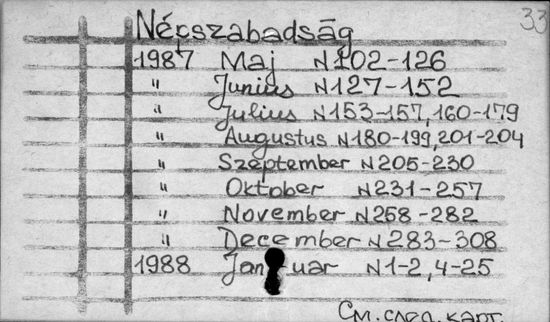 33
Nécszabadság
1987 Maj N102-126
" Junius N127-152
" Julius N153-157,160-179
" Augustus N180-199,201-204
" Szeptember N205-230
" Oktober N231-257
" November N258-282
" December N283-308
1988 Januar N1-2,4-25
См. след. карт.